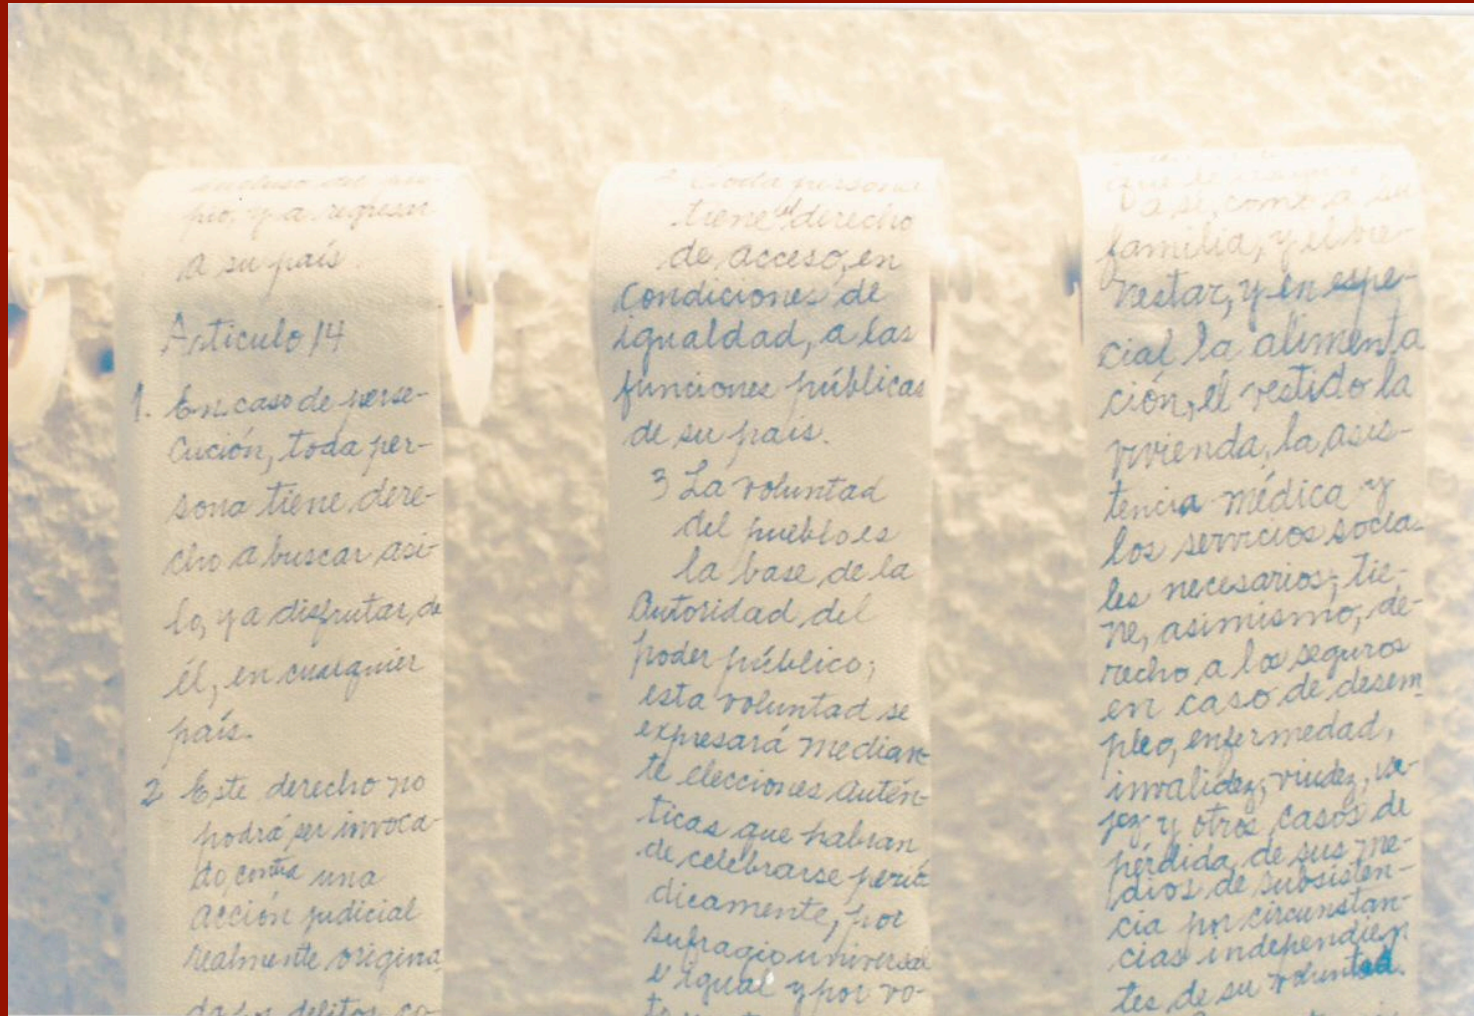 incluso del pro-
pio, y a regresar
a su país.
Artículo 14
1. En caso de perse-
cución, toda per-
sona tiene dere-
cho a buscar asi-
lo, y a disfrutar de
él, en cualquier
país.
2 Este derecho no
podrá ser invoca-
do contra una
acción judicial
realmente origina
da por delitos co-
2 Toda persona
tiene el derecho
de acceso, en
Condiciones de
igualdad, a las
funciones públicas
de su país.
3 La voluntad
del pueblo es
la base de la
Autoridad del
poder público;
esta voluntad se
expresará median-
te elecciones autén-
ticas que habran
de celebrarse perió
dicamente, por
sufragio universal
e igual y por vo-
que le
a sí, como a su
familia, y el bie-
nestar, y en espe-
cial la alimenta
ción, el vestido la
vivienda, la asis-
tencia médica y
los servicios socia-
les necesarios; tie-
ne, asimismo, de-
recho a los seguros
en caso de desem
pleo, enfermedad,
invalidez, viudez, ve-
jez y otros casos de
pérdida de sus me-
dios de subsisten-
cia por circunstan-
cias independien
tes de su voluntad.